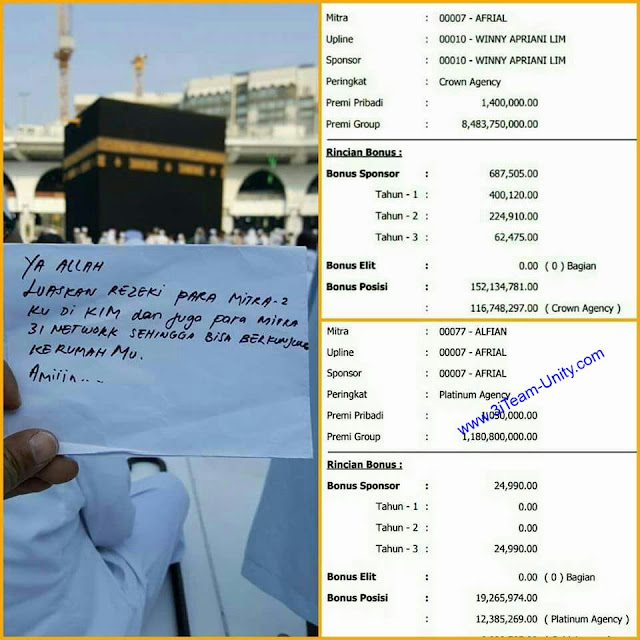 YA ALLAH
LUASKAN REZEKI PARA MITRA-2
KU DI KIM dan juga PARA MITRA
3I NETWORK SEHINGGA BISA BERKUNJUNG
KERUMAH MU.
Amiiin...
Mitra : 00007 - AFRIAL
Upline : 00010 - WINNY APRIANI LIM
Sponsor : 00010 - WINNY APRIANI LIM
Peringkat : Crown Agency
Premi Pribadi : 1,400,000.00
Premi Group : 8,483,750,000.00
Rincian Bonus :
Bonus Sponsor : 687,505.00
Tahun - 1 : 400,120.00
Tahun - 2 : 224,910.00
Tahun - 3 : 62,475.00
Bonus Elit : 0.00 ( 0 ) Bagian
Bonus Posisi : 152,134,781.00
116,748,297.00 ( Crown Agency )
Mitra : 00077 - ALFIAN
Upline : 00007 - AFRIAL
Sponsor : 00007 - AFRIAL
Peringkat : Platinum Agency
Premi Pribadi :
Premi Group : 1,180,800,000.00
www.3iTeam-Unity.com
Rincian Bonus :
Bonus Sponsor : 24,990.00
Tahun - 1 : 0.00
Tahun - 2 : 0.00
Tahun - 3 : 24,990.00
Bonus Elit : 0.00 ( 0 ) Bagian
Bonus Posisi : 19,265,974.00
12,385,269.00 ( Platinum Agency )